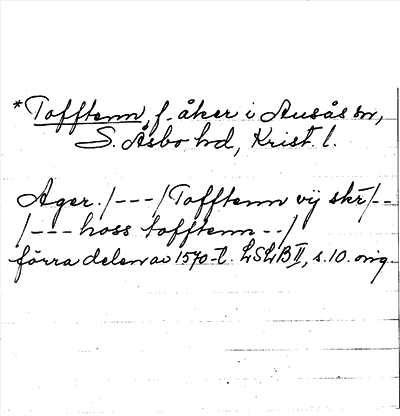 *Tofftenn, f. åker i Ausås sn,
S. Åsbo hd, Krist. l.
Ager. /---/ Tofftenn vij skr /--
/--- hoss tofftenn --/
förra delen av 1570-t. LSLB II, s. 10. orig.